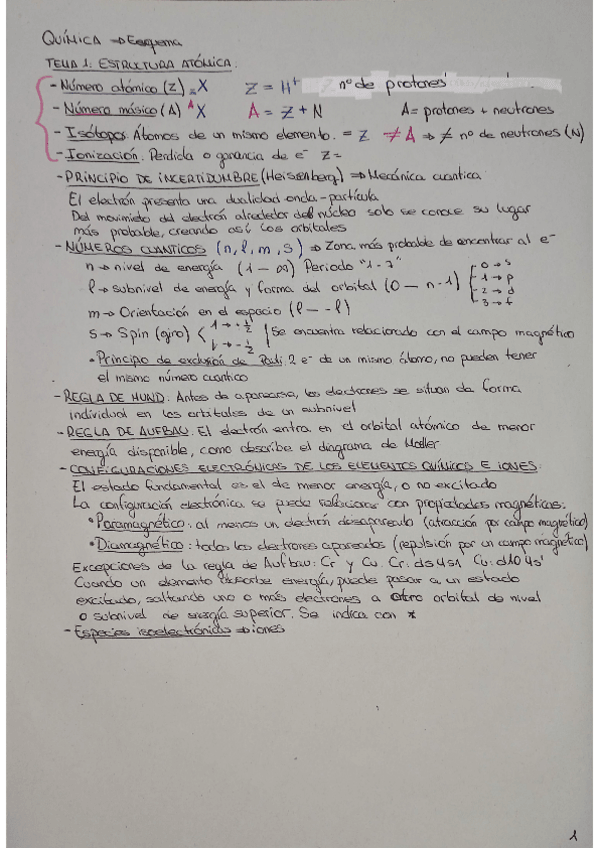 QUÍMICA → Esquema
TEMA 1: ESTRUCTURA ATÓMICA.
- Número atómico (Z) zX Z = H⁺ Z nº de protones
- Número másico (A) ᴬX A = Z + N A = protones + neutrones
- Isótopos: Átomos de un mismo elemento. = Z ≠ A ⇒ ≠ nº de neutrones (N)
- Ionización: Perdida o ganancia de e⁻ Z =
- PRINCIPIO DE INCERTIDUMBRE (Heisenberg) ⇒ Mecánica cuantica
El electrón presenta una dualidad onda-partícula
Del movimiento del electrón alrededor del núcleo solo se conoce su lugar
más probable, creando así los orbitales
- NÚMEROS CUANTICOS (n, l, m, s) ⇒ Zona más probable de encontrar al e⁻
n → nivel de energía (1 — ∞) Periodo "1-7"
l → subnivel de energía y forma del orbital (0 — n-1) 0 → s 1 → p 2 → d 3 → f
m → Orientación en el espacio (l — -l)
s → Spin (giro) 1 → ½ 1 → -½ Se encuentra relacionado con el campo magnético
• Principio de exclusión de Pauli: 2 e⁻ de un mismo átomo, no pueden tener
el mismo número cuantico
- REGLA DE HUND: Antes de aparearse, los electrones se situan de forma
individual en los orbitales de un subnivel
- REGLA DE AUFBAU: El electrón entra en el orbital atómico de menor
energía disponible, como describe el diagrama de Moller
- CONFIGURACIONES ELECTRÓNICAS DE LOS ELEMENTOS QUÍMICOS E IONES:
El estado fundamental es el de menor energía, o no excitado
La configuración electrónica se puede relacionar con propiedades magnéticas:
• Paramagnético: al menos un electrón desapareado (atracción por campo magnético)
• Diamagnético: todos los electrones apareados (repulsión por un campo magnético)
Excepciones de la regla de Aufbau: Cr y Cu. Cr: d5 4s1 Cu: d10 4s¹
Cuando un elemento absorbe energía, puede pasar a un estado
excitado, saltando uno o más electrones a otro orbital de nivel
o subnivel de energía superior. Se indica con *
- Especies isoelectrónicas ⇒ iones
1